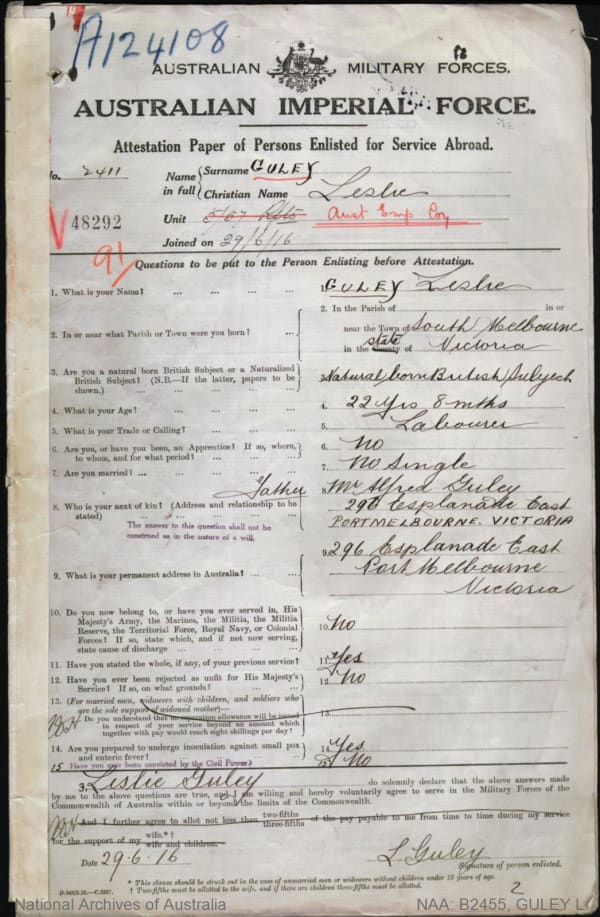 A124108
AUSTRALIAN MILITARY FORCES.
AUSTRALIAN IMPERIAL FORCE.
Attestation Paper of Persons Enlisted for Service Abroad.
No. 2411
Name in full
Surname GULEY
Christian Name Leslie
V48292
Unit Aust Emp Coy
Joined on 29/6/16
91
Questions to be put to the Person Enlisting before Attestation.
1. What is your Name? ... ... ... ...
1. GULEY Leslie
2. In or near what Parish or Town were you born? ...
2. In the Parish of in or
near the Town of South Melbourne
in the County of state Victoria
3. Are you a natural born British Subject or a Naturalized
British Subject? (N.B.—If the latter, papers to be
shown.) ... ... ... ... ...
3. Natural born British Subject
4. What is your Age? ... ... ... ...
4. 22 Yrs 8 mths
5. What is your Trade or Calling? ... ... ...
5. Labourer
6. Are you, or have you been, an Apprentice? If so, where,
to whom, and for what period? ... ... ...
6. No
7. Are you married? ... ... ... ... ...
7. No Single
8. Who is your next of kin? (Address and relationship to be
stated) ... ... Father
The answer to this question shall not be
construed as in the nature of a will.
8. Mr Alfred Guley
296 Esplanade East
PORT MELBOURNE. VICTORIA
9. What is your permanent address in Australia? ... ...
9. 296 Esplanade East
Port Melbourne
Victoria
10. Do you now belong to, or have you ever served in, His
Majesty's Army, the Marines, the Militia, the Militia
Reserve, the Territorial Force, Royal Navy, or Colonial
Forces? If so, state which, and if not now serving,
state cause of discharge ... ... ... ...
10. No
11. Have you stated the whole, if any, of your previous service?
11. Yes
12. Have you ever been rejected as unfit for His Majesty's
Service? If so, on what grounds? ... ... ...
12. No
13. (For married men, widowers with children, and soldiers who
are the sole support of widowed mother)—
Do you understand that no separation allowance will be issued
in respect of your service beyond an amount which
together with pay would reach eight shillings per day?
13.
14. Are you prepared to undergo inoculation against small pox
and enteric fever? ... ... ... ...
14. Yes
15 Have you ever been convicted by the Civil Power?
15 No
I, Leslie Guley do solemnly declare that the above answers made
by me to the above questions are true, and I am willing and hereby voluntarily agree to serve in the Military Forces of the
Commonwealth of Australia within or beyond the limits of the Commonwealth.
*And I further agree to allot not less than two-fifths three-fifths of the pay payable to me from time to time during my service
for the support of my wife.*† wife and children.
Date 29.6.16
L. Guley
Signature of person enlisted.
* This clause should be struck out in the case of unmarried men or widowers without children under 18 years of age.
† Two-fifths must be allotted to the wife, and if there are children three-fifths must be allotted.
2
National Archives of Australia
NAA: B2455, GULEY L